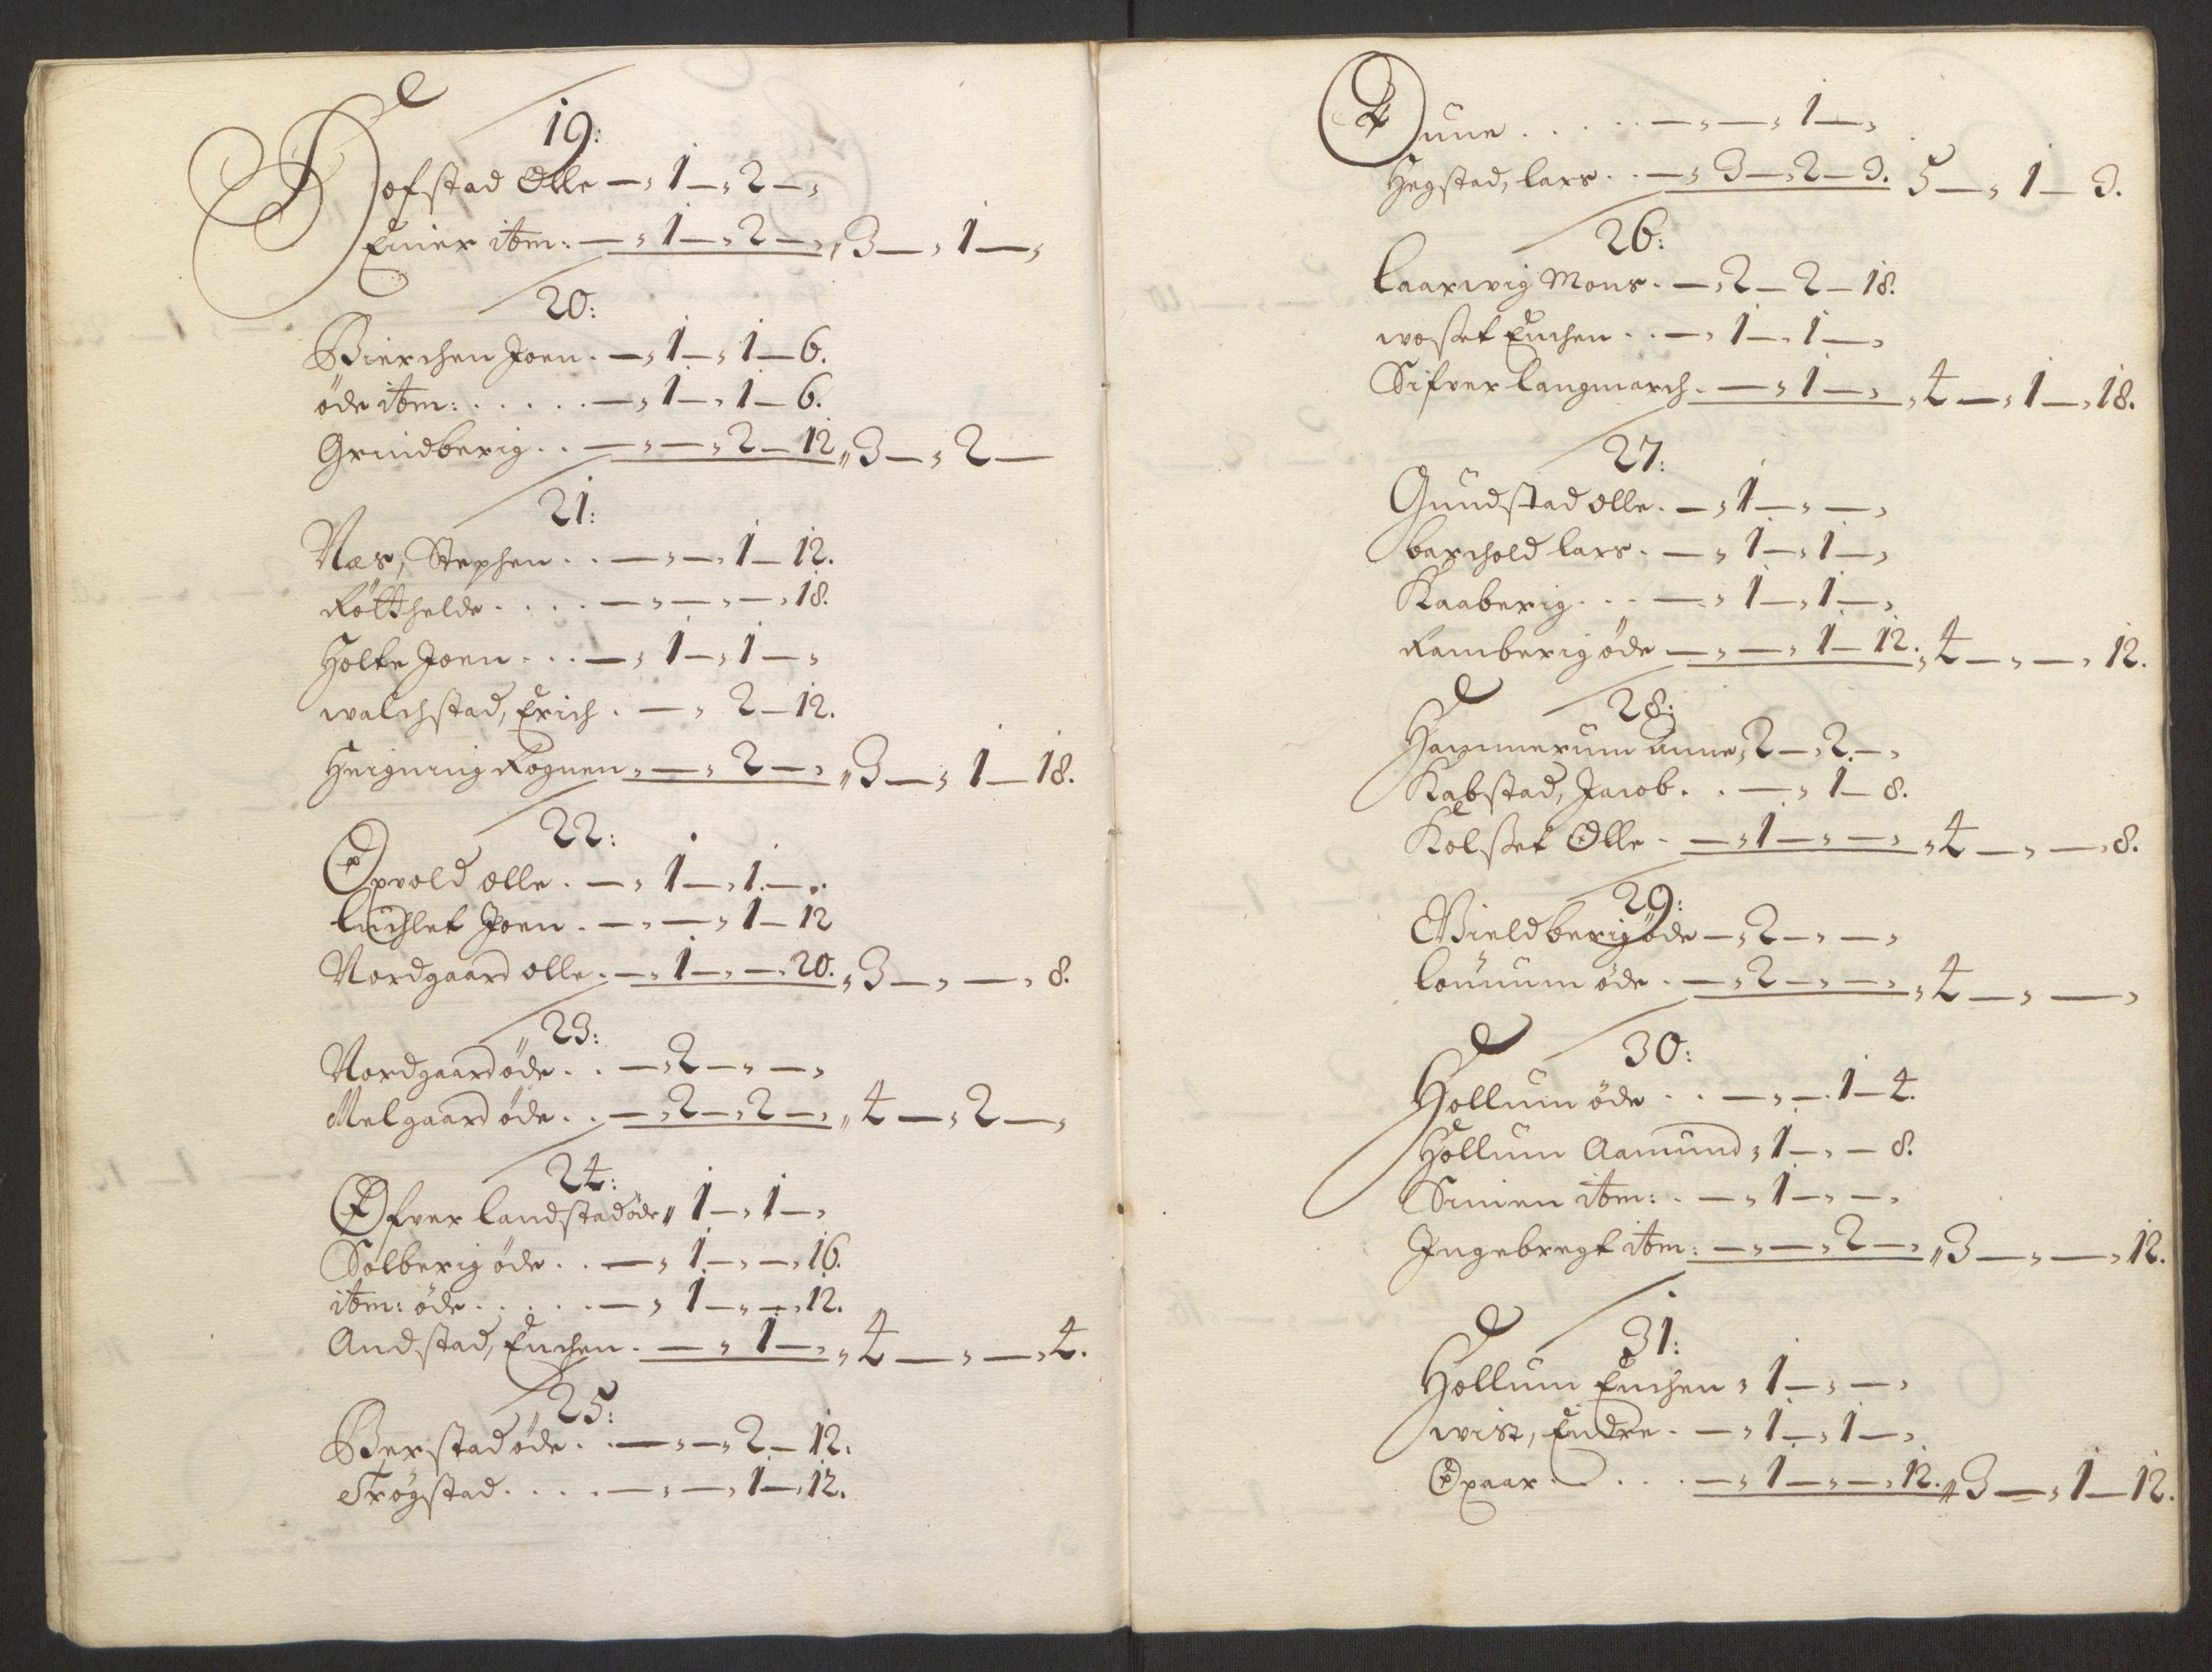 19:
Hofstad Olle — , 1 — , 2 — ,
Einer itm: — , 1 — , 2 — , , 3 — , 1 — ,
20:
Bierchen Joen . — , 1 — , 1 — 6.
öde itm: . . . . . — , 1 — , 1 — 6.
Grindberig . . — , — , 2 — 12 „ 3 — , 2 —
21:
Næs, Stephen . . — , — , 1 — 12.
Rötthelde . . . . — , — , — , 18.
Holte Joen . . . — , 1 — , 1 — ,
walchstad, Erich . — , 2 — 12.
Rognen , — , 2 — , „ 3 — , 1 — 18.
22:
Opvold olle . — , 1 — , 1 — ,
Luchlet Joen . — , — , 1 — 12
Nordgaard olle . — , 1 — , — , 20. , 3 — , — , 8.
23:
Nordgaard öde . . — , 2 — , — ,
Melgaard öde . . — , 2 — , 2 — , „ 4 — , 2 — ,
24:
Öfver landstad öde „ 1 — , 1 — ,
Solberig öde . . — , 1 — , — , 16.
itm: öde . . . . . — , 1 — , — , 12.
Andstad, Enchen . — , 1 — , „ 4 — , — , 4.
25:
Berstad öde . . — , — , 2 — 12.
Trögstad . . . . — , — , 1 — , 12.
Tune . . . . . — , — , 1 — ,
Hegstad, lars . . — , 3 — , 2 — 3. 5 — , 1 — 3.
26:
Laarwig Mons . — , 2 — 2 — 18.
wosset Enchen . . — , 1 — , 1 — ,
Sifver langmarch . — , 1 — , , 4 — , 1 — , 18.
27:
Gundstad olle . — , 1 — , — ,
barchold lars . — , 1 — , 1 — ,
Kaaberig . . . — , 1 — , 1 — ,
Ramberig öde — , — , 1 — 12. , 4 — , — , 12.
28:
Hammerum Anne , 2 — , 2 — ,
Kabstad, Jacob . . — , 1 — 8.
Kolsset Olle . — , 1 — , — , , 4 — , — , 8.
29:
Wieldberig öde — , 2 — , — ,
Lounum öde . — , 2 — , — , , 4 — , — ,
30:
Hollum öde . . — , — , 1 — 4.
Hollum Aamund , 1 — , — 8.
Simen itm: . — , 1 — , — ,
Ingebregt itm: — , — , 2 — , „ 3 — , — , 12.
31:
Hollum Enchen , 1 — , — ,
wist, Endre . — , 1 — , 1 — ,
Opaar . . . . — , 1 — , — , 12. „ 3 — , 1 — 12.